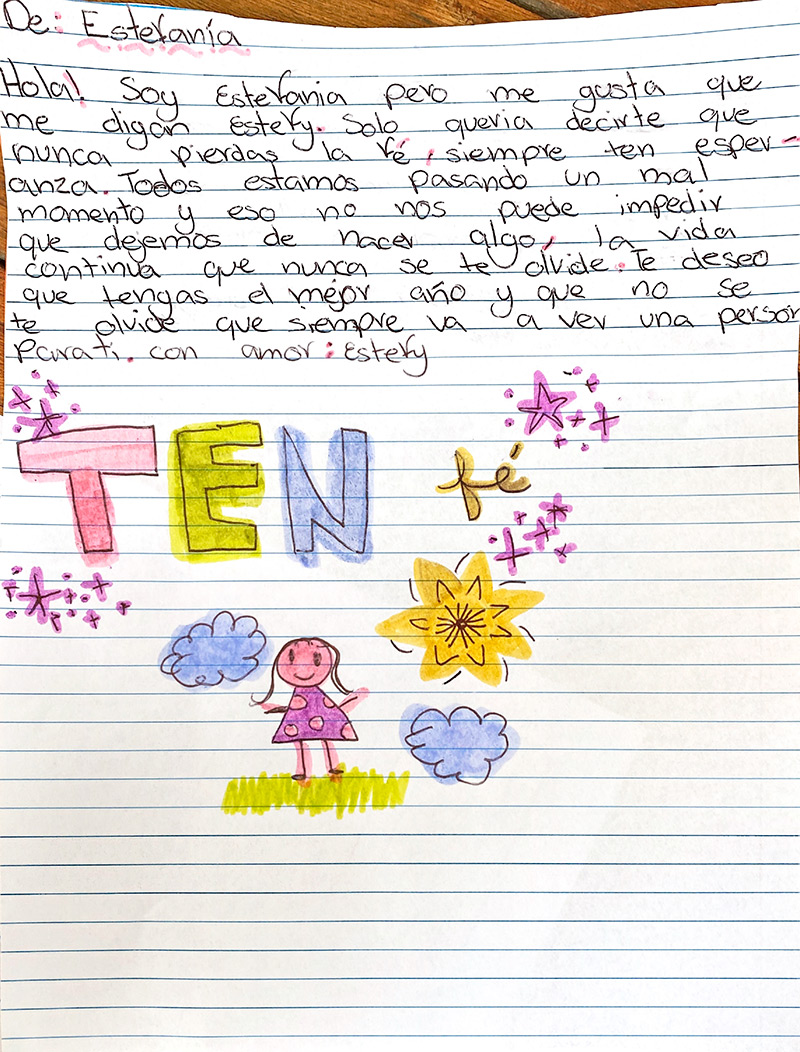 De: Estefanía
Hola! Soy Estefania pero me gusta que
me digan Estefy. Solo queria decirte que
nunca pierdas la fé, siempre ten esper-
anza. Todos estamos pasando un mal
momento y eso no nos puede impedir
que dejemos de hacer algo, la vida
continua que nunca se te olvide. Te deseo
que tengas el mejor año y que no se
te olvide que siempre va a ver una person
para ti. con amor: Estefy
TEN fé